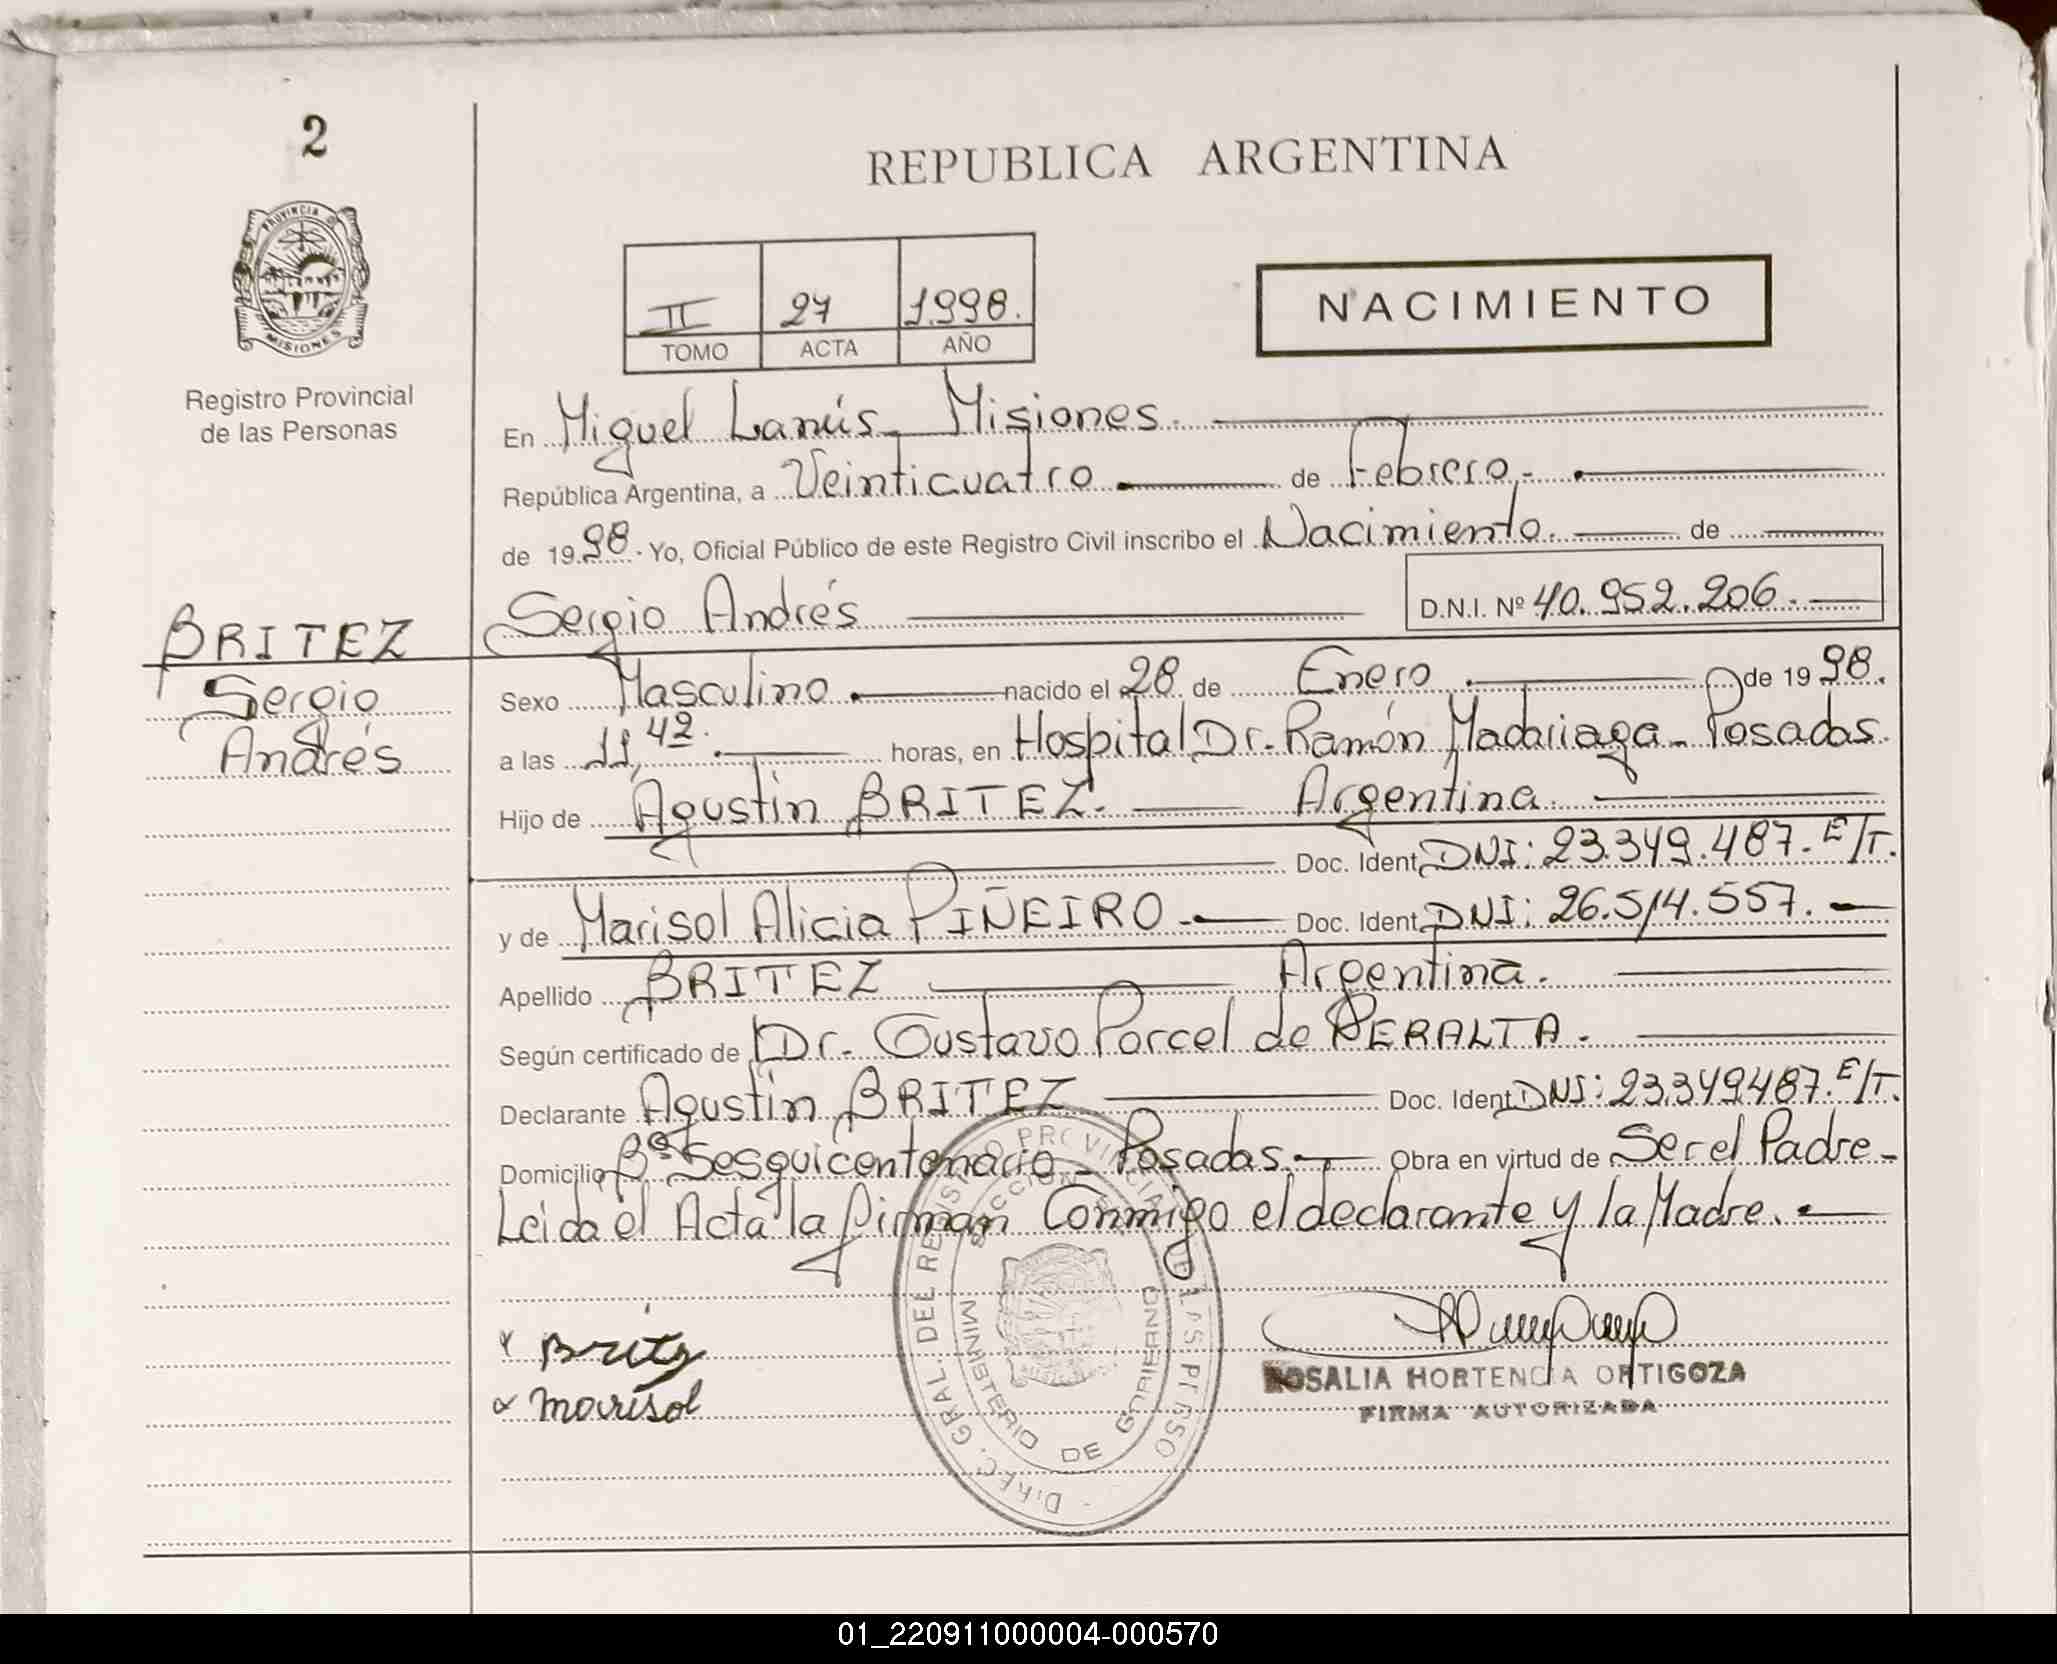 2
REPUBLICA ARGENTINA
PROVINCIA D
MISIONES
Registro Provincial
de las Personas
II 27 1.998.
TOMO ACTA AÑO
NACIMIENTO
En Miguel Lanús - Misiones.
República Argentina, a Veinticuatro de Febrero.-
de 1998. Yo, Oficial Público de este Registro Civil inscribo el Nacimiento. de
Sergio Andrés D.N.I. Nº 40.952.206.
BRITEZ
Sergio
Andrés
Sexo Masculino. nacido el 28 de Enero. de 1998.
a las 11,42. horas, en Hospital Dr. Ramón Madariaga - Posadas.
Hijo de Agustin BRITEZ. Argentina.
Doc. Ident. DNI: 23.349.487. E/T.
y de Marisol Alicia PIÑEIRO - Doc. Ident. DNI: 26.514.557. -
Apellido BRITEZ Argentina.
Según certificado de Dr. Gustavo Porcel de PERALTA.
Declarante Agustin BRITEZ Doc. Ident. DNI: 23.349.487. E/T.
Domicilio Bº Sesquicentenario - Posadas. Obra en virtud de Ser el Padre -
Leida el Acta la firman Conmigo el declarante y la Madre.
x Britez
x Marisol
DIREC. GRAL. DEL REGISTRO PROVINCIAL DE LAS PERSO
SECCION
MINISTERIO DE GOBIERNO
ROSALIA HORTENCIA ORTIGOZA
FIRMA AUTORIZADA
01_220911000004-000570